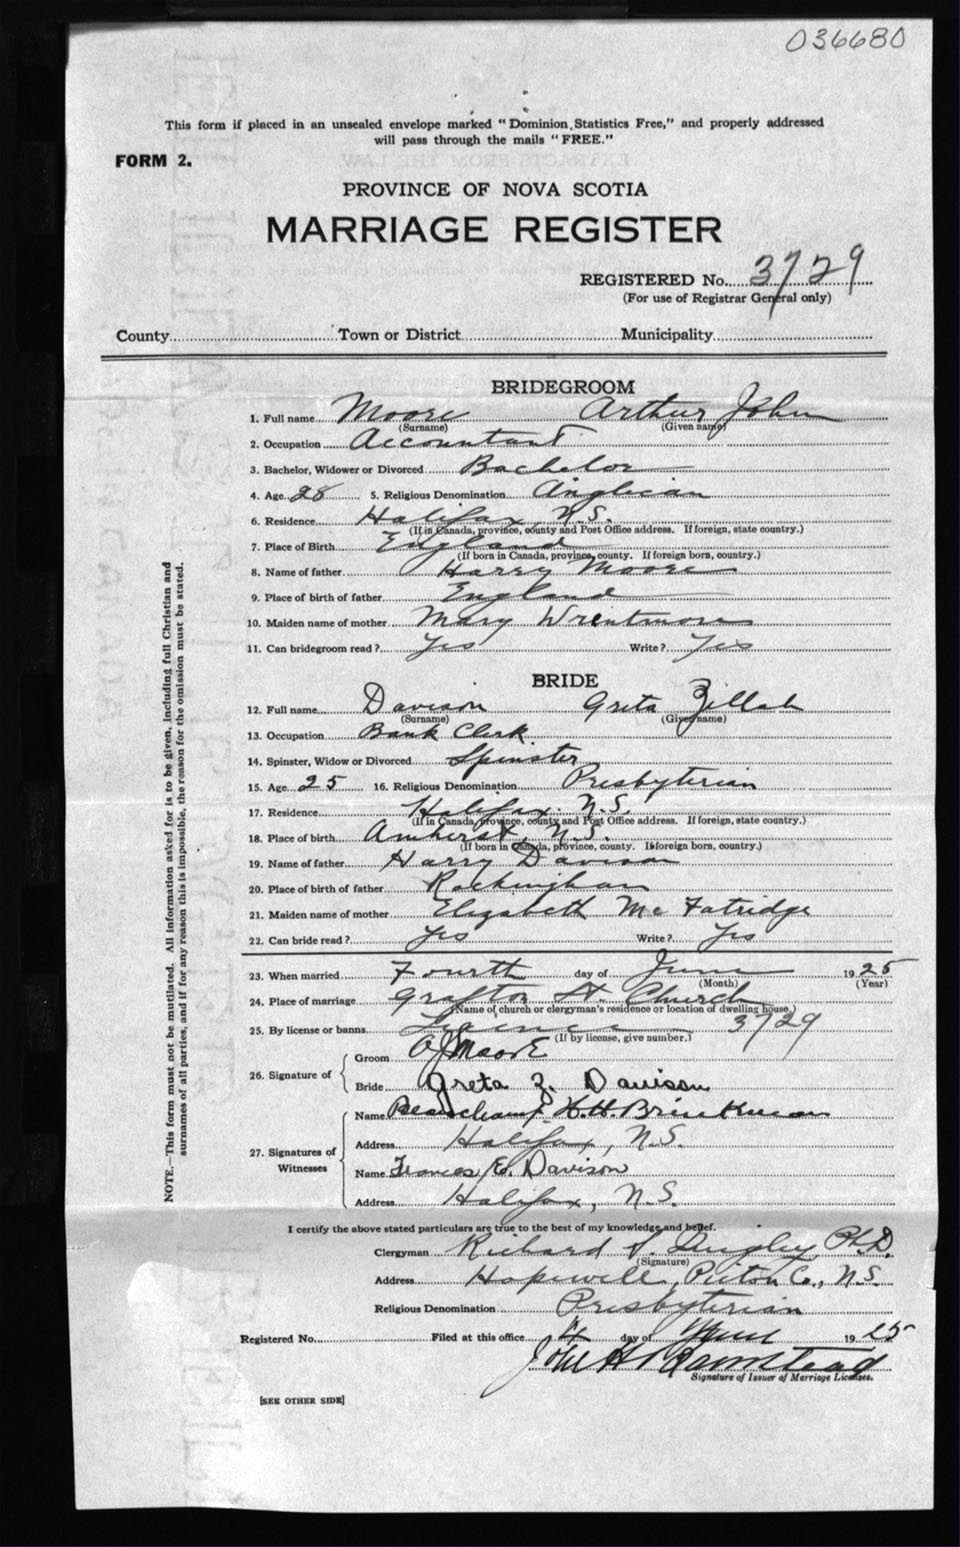 036680
This form if placed in an unsealed envelope marked "Dominion Statistics Free," and properly addressed
will pass through the mails "FREE."
FORM 2.
PROVINCE OF NOVA SCOTIA
MARRIAGE REGISTER
REGISTERED No. 3729
(For use of Registrar General only)
County Town or District Municipality
BRIDEGROOM
1. Full name Moore Arthur John
(Surname) (Given name)
2. Occupation Accountant
3. Bachelor, Widower or Divorced Bachelor
4. Age 28 5. Religious Denomination Anglican
6. Residence Halifax, N.S.
(If in Canada, province, county and Post Office address. If foreign, state country.)
7. Place of Birth England
(If born in Canada, province, county. If foreign born, country.)
8. Name of father Harry Moore
9. Place of birth of father England
10. Maiden name of mother Mary Wrentmore
11. Can bridegroom read? Yes Write? Yes
BRIDE
12. Full name Davison Greta Zillah
(Surname) (Given name)
13. Occupation Bank Clerk
14. Spinster, Widow or Divorced Spinster
15. Age 25 16. Religious Denomination Presbyterian
17. Residence Halifax N.S.
(If in Canada, province, county and Post Office address. If foreign, state country.)
18. Place of birth Amherst, N.S.
(If born in Canada, province, county. If foreign born, country.)
19. Name of father Harry Davison
20. Place of birth of father Rockingham
21. Maiden name of mother Elizabeth McFatridge
22. Can bride read? Yes Write? Yes
23. When married Fourth day of June 1925
(Month) (Year)
24. Place of marriage Grafton St. Church
(Name of church or clergyman's residence or location of dwelling house.)
25. By license or banns License 3729
(If by license, give number.)
26. Signature of Groom AJ Moore
Bride Greta Z. Davison
27. Signatures of Witnesses
Name Beauchamp H.H. Brinkman
Address Halifax, N.S.
Name Frances E. Davison
Address Halifax, N.S.
I certify the above stated particulars are true to the best of my knowledge and belief.
Clergyman Richard Ph.D.
(Signature)
Address Hopewell, Pictou Co., N.S.
Religious Denomination Presbyterian
Registered No. Filed at this office 4 day of June 1925
John H
Signature of Issuer of Marriage Licenses.
[SEE OTHER SIDE]
NOTE.—This form must not be mutilated. All information asked for is to be given, including full Christian and
surnames of all parties, and if for any reason this is impossible, the reason for the omission must be stated.